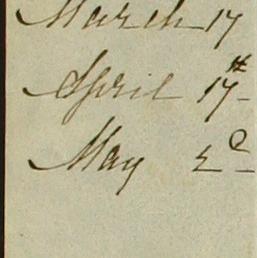 March 17
April 17th
May 2d